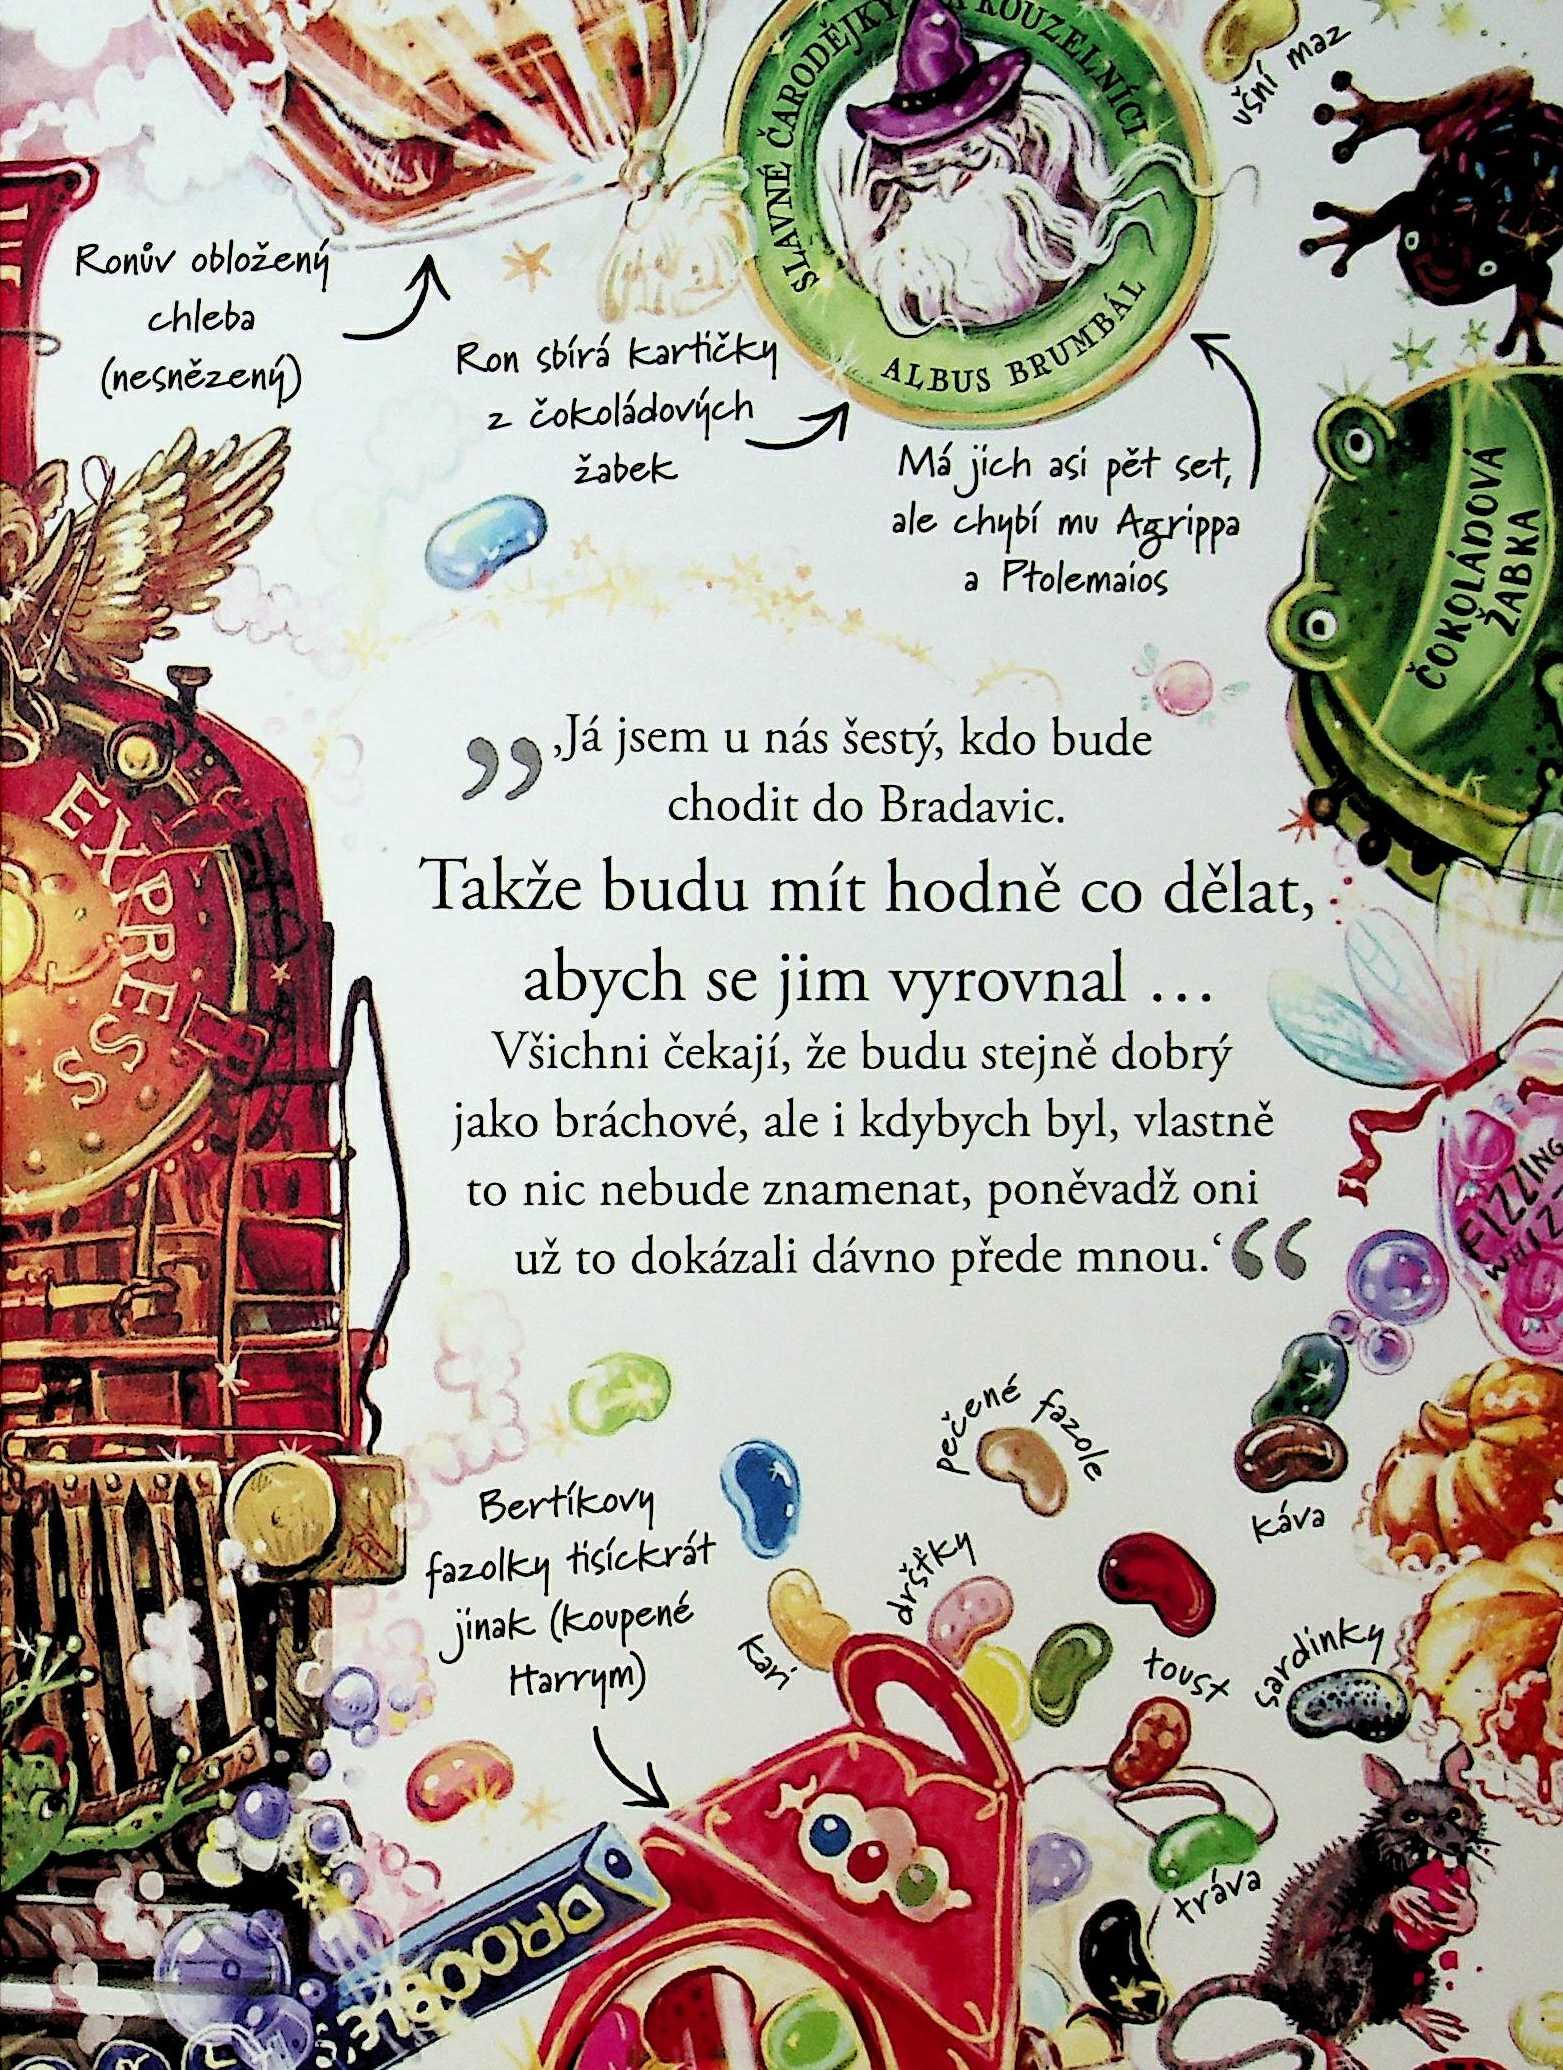 SLAVNÉ ČARODĚJKY A KOUZELNÍCI
ALBUS BRUMBÁL
ušní maz
Ronův obložený
chleba
(nesnězený)
Ron sbírá kartičky
z čokoládových
žabek
Má jich asi pět set,
ale chybí mu Agrippa
a Ptolemaios
ČOKOLÁDOVÁ
ŽABKA
EXPRESS
„‚Já jsem u nás šestý, kdo bude
chodit do Bradavic.
Takže budu mít hodně co dělat,
abych se jim vyrovnal ...
Všichni čekají, že budu stejně dobrý
jako bráchové, ale i kdybych byl, vlastně
to nic nebude znamenat, poněvadž oni
už to dokázali dávno přede mnou.‘“
FIZZING
WHIZ
pečené fazole
káva
Bertíkovy
fazolky tisíckrát
jinak (koupené
Harrym)
kari
dršťky
toust
sardinky
tráva
DROOBLE'S